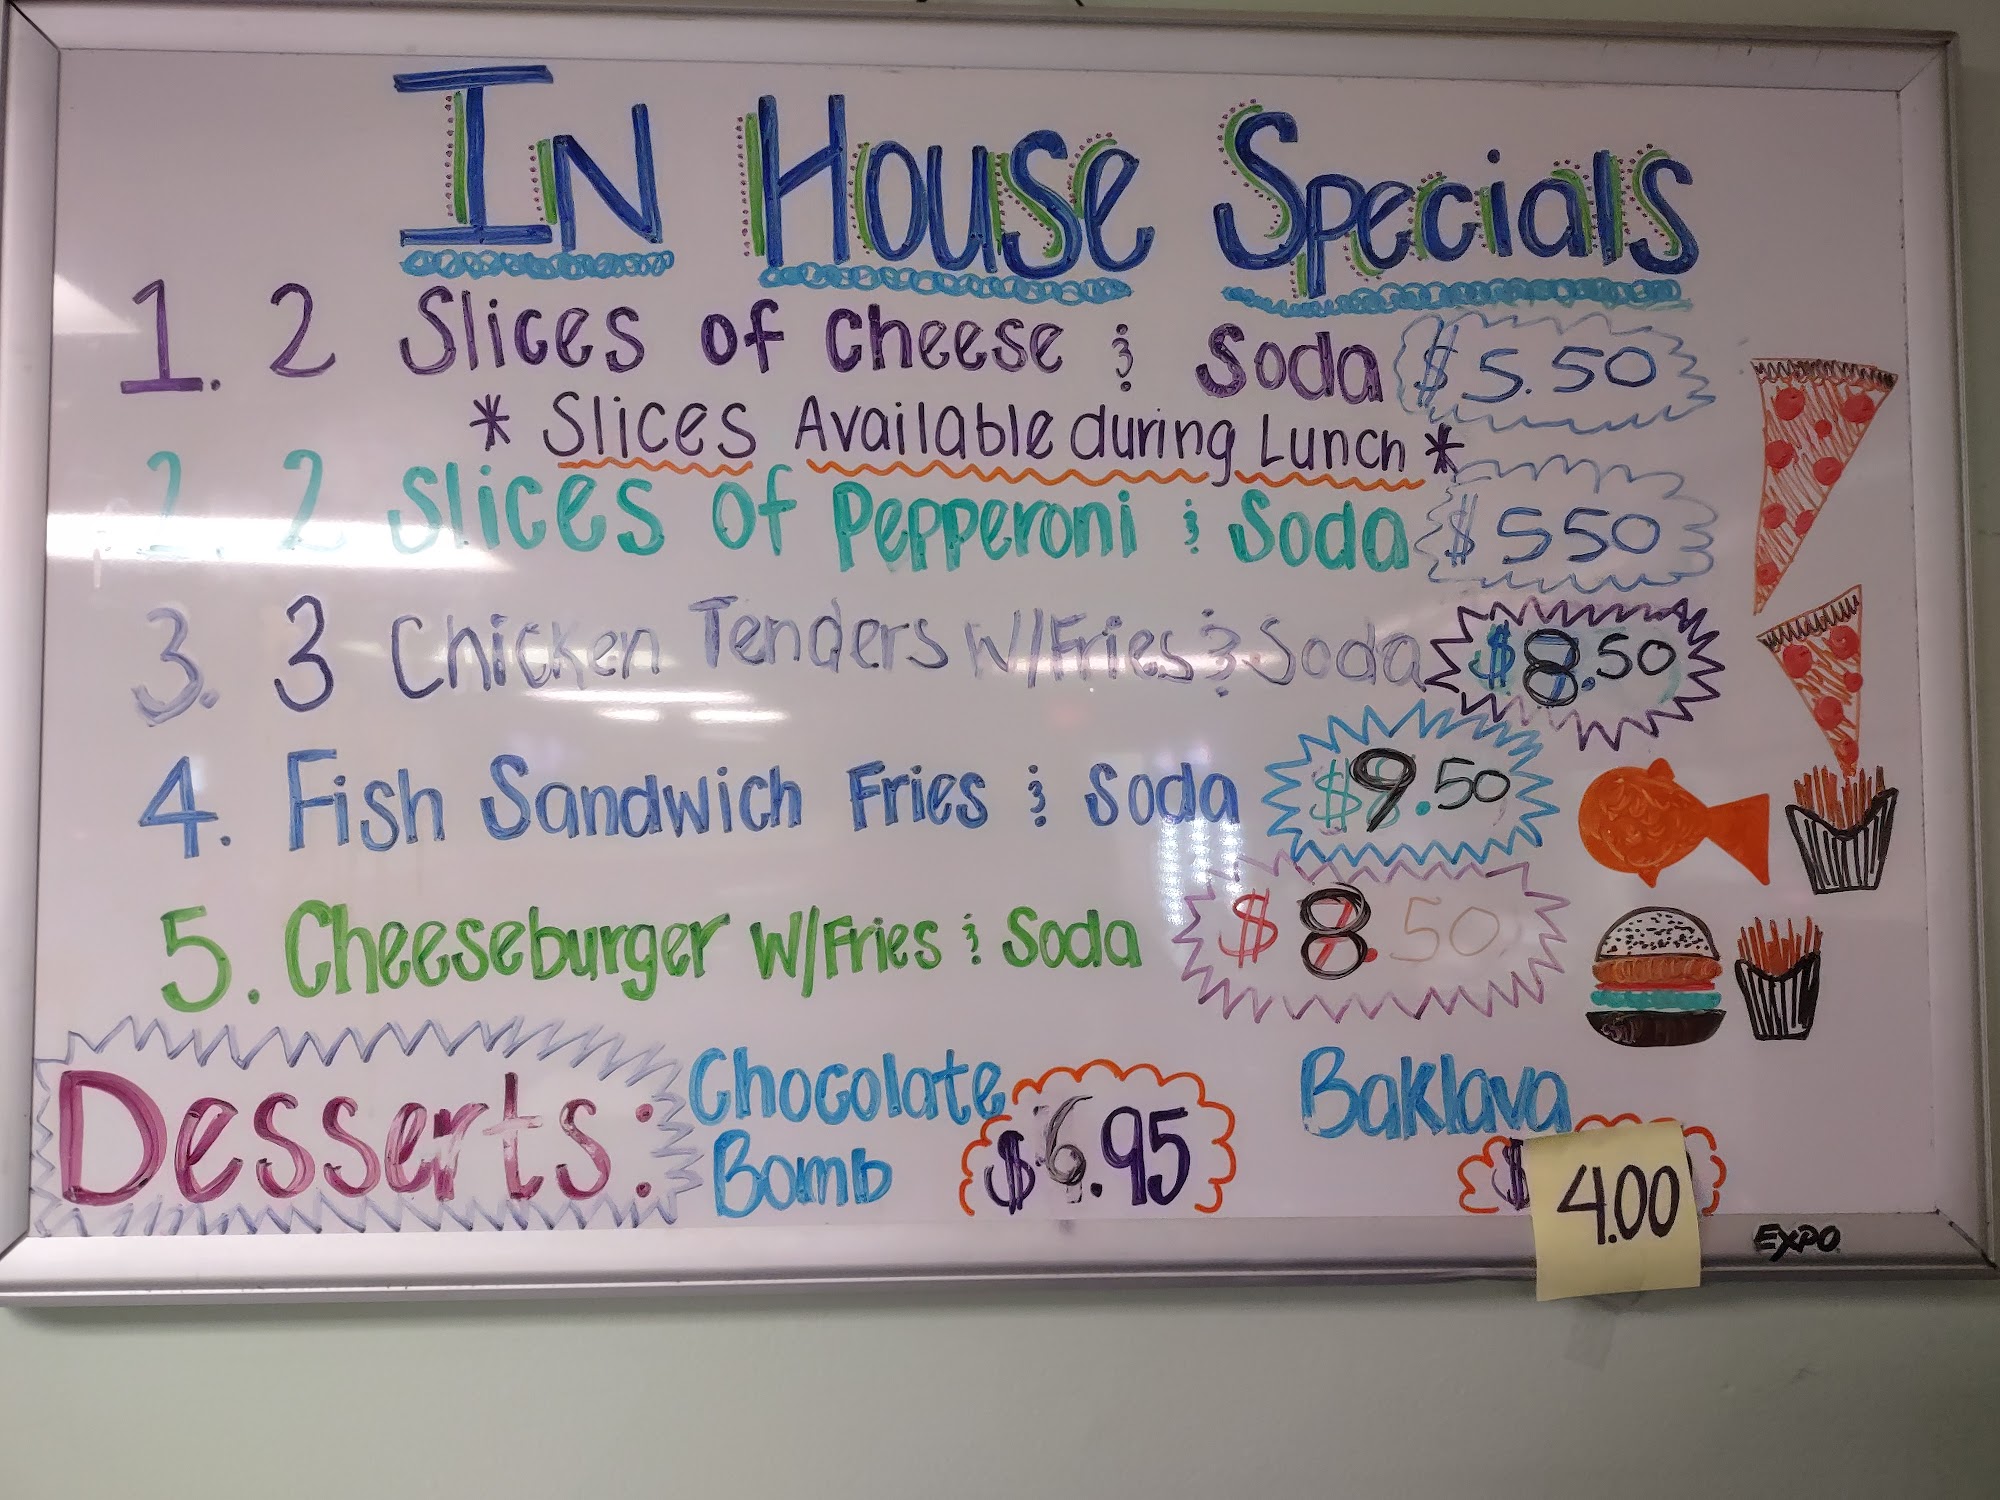 In House Specials
1. 2 Slices of Cheese & Soda $5.50
* Slices Available during Lunch *
2. 2 Slices of Pepperoni & Soda $550
3. 3 Chicken Tenders W/Fries & Soda $8.50
4. Fish Sandwich Fries & Soda $9.50
5. Cheeseburger W/Fries & Soda $8.50
Desserts: Chocolate Bomb $6.95
Baklava $4.00
EXPO